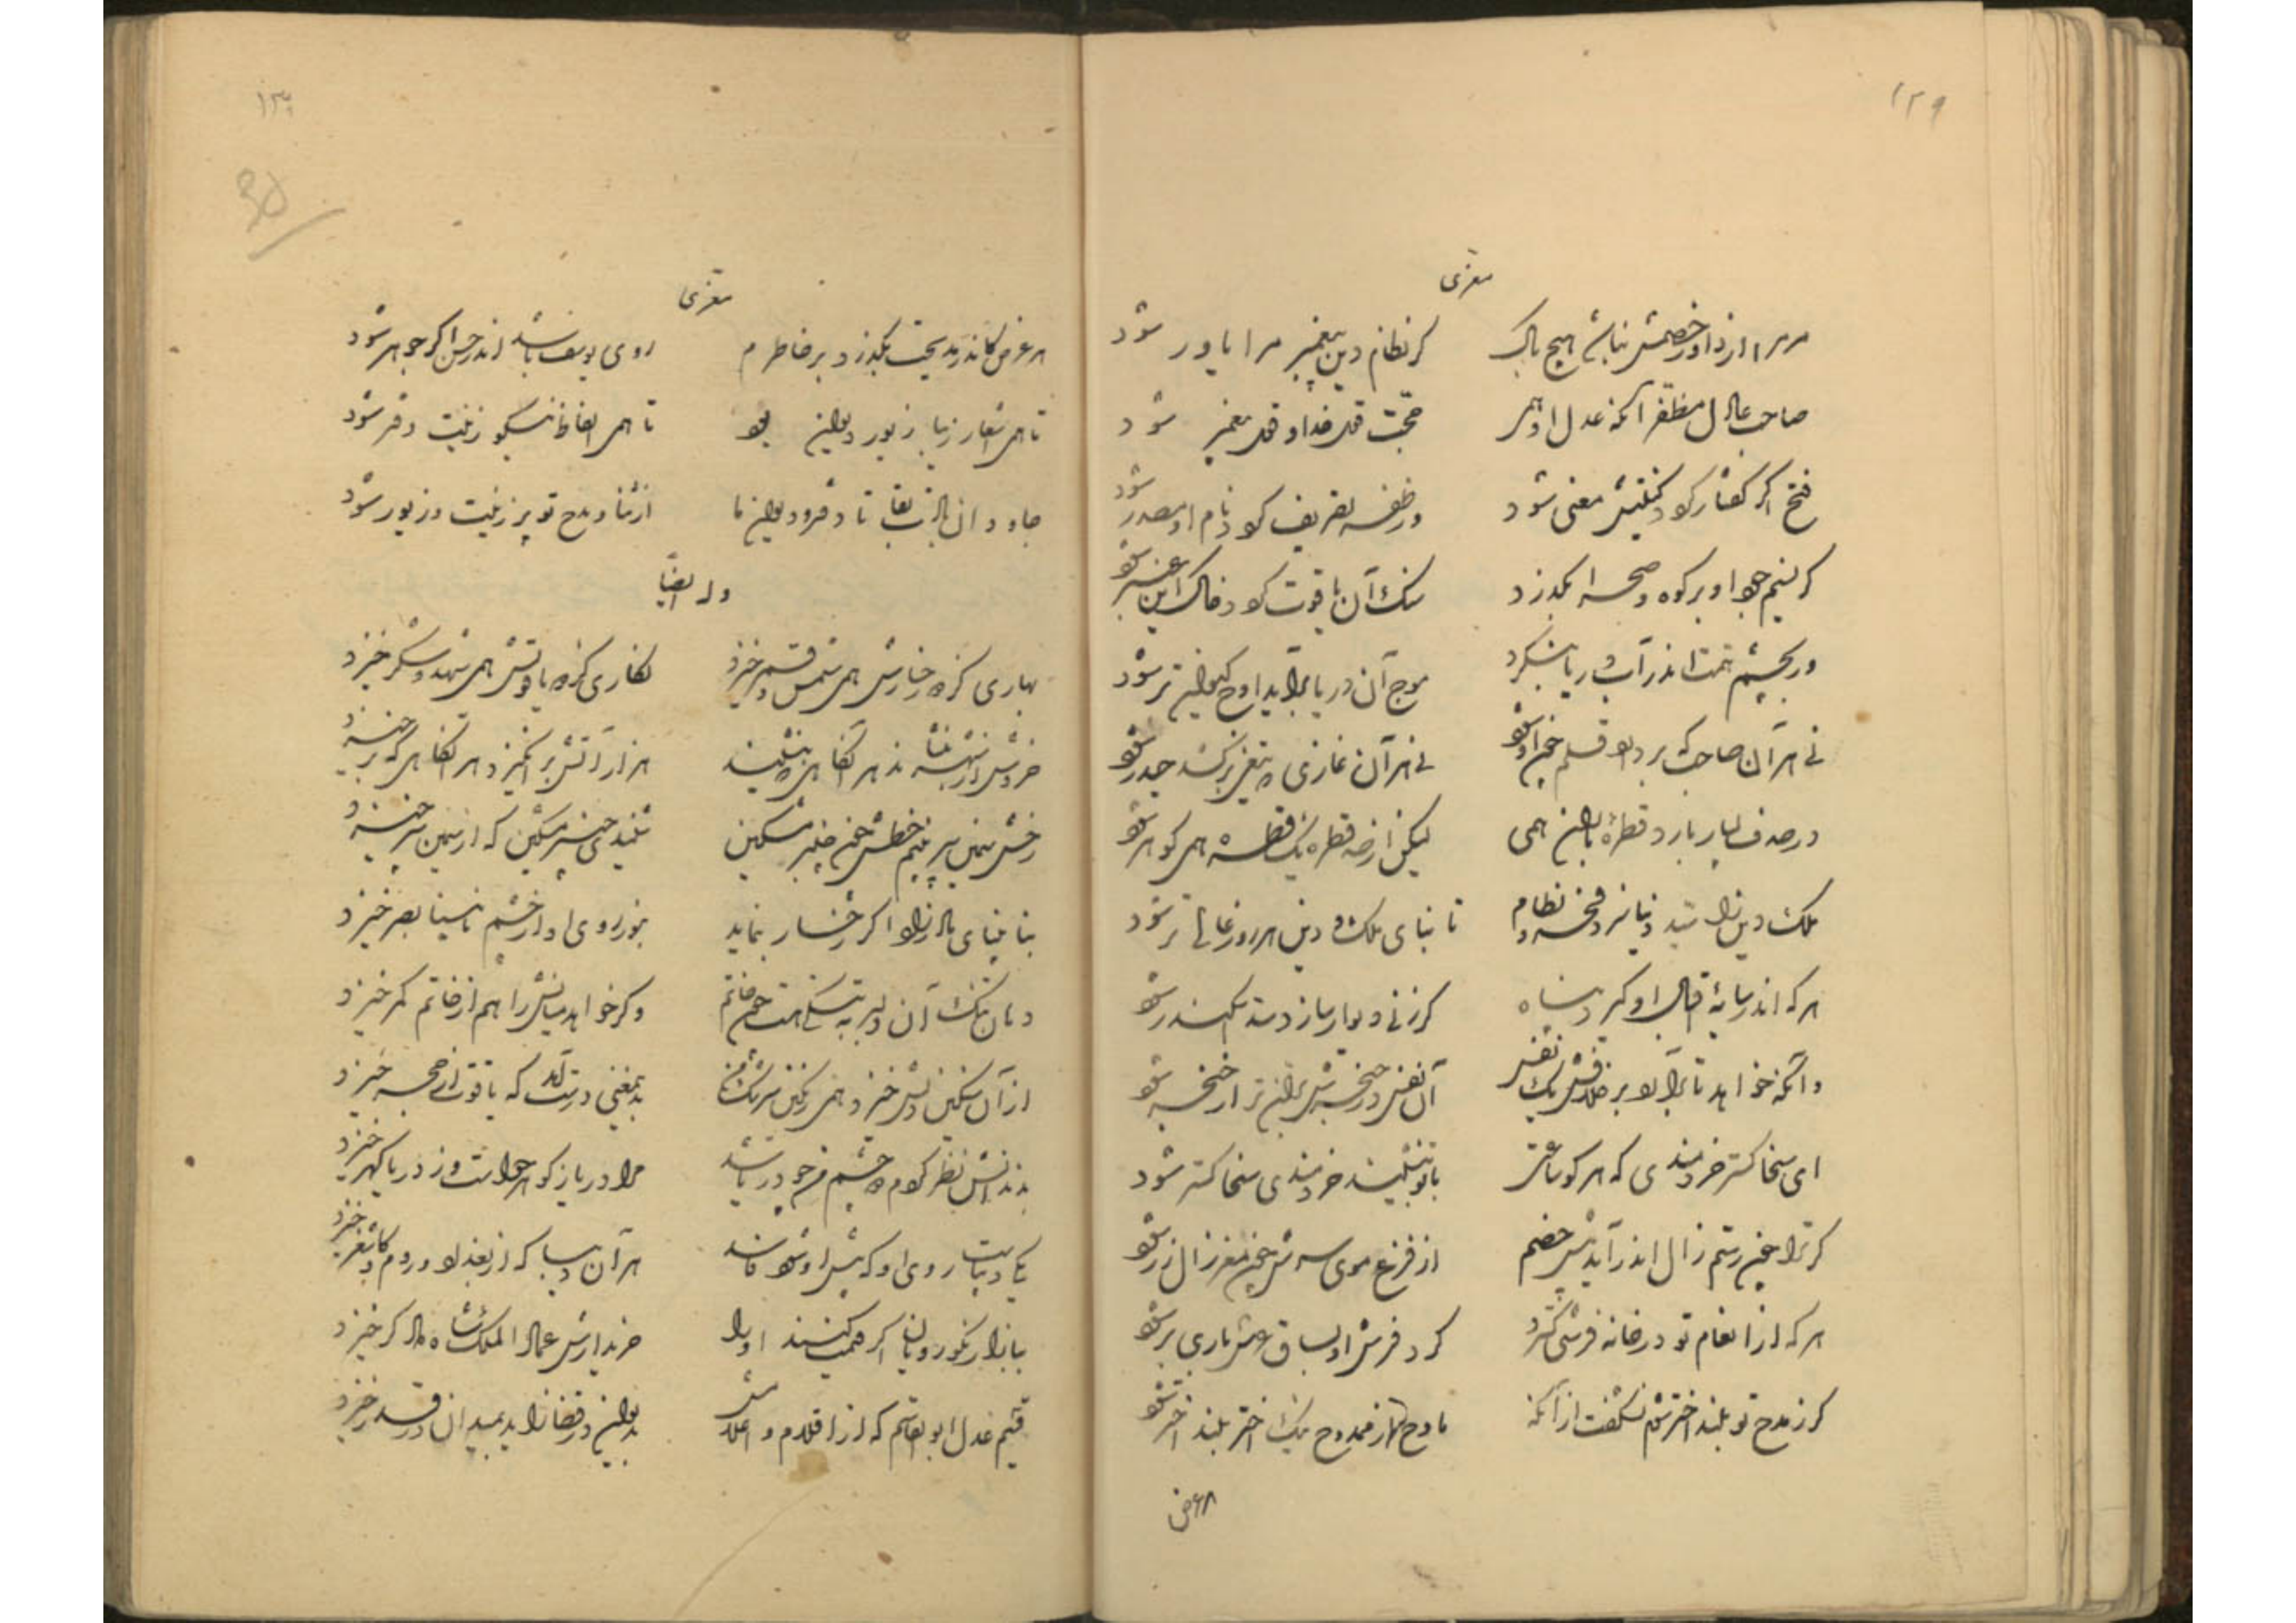 ۱۲۹
معزی
مر مرا از داور خصمش نباشد هیچ باک کر نظام دین پیغمبر مرا یاور شود
صاحب عادل مظفر آنکه عدل او همی حجت قول خدا و قول پیغمبر شود
فتح اگر گفتار کردد کنیتش معنی شود ور ظفر تصریف کردد نام او مصدر شود
کر نسیم جود او بر کوه و صحرا بگذرد سنک آن یاقوت کردد خاک این عنبر شود
ور بچشم همت اندر آب دریا بنکرد موج آن دریا برآید اوج کیوان تر شود
نی هر آن صاحب که بردارد قلم چون او شود نی هر آن غازی که تیغی برکشد حیدر شود
در صدف بسیار بارد قطره باران همی لیکن از صد قطره یک قطره همی کوهر شود
ملک دین را سید دنیا نزد فخر و نظام تا بنای ملک و دین هر روز عالی تر شود
هرکه اندر سایه اقبال او کیرد پناه کر زنی دیوار سازد سد اسکندر شود
وانکه خواهد تا برآرد بر خلافش یک نفس آن نفس در حنجرش بران تر از خنجر شود
ای سخا کستر خردمندی که هر کو ساعتی با تو بنشیند خردمندی سخا کستر شود
کر ترا چون رستم زال اندر آید پیش خصم از فزع موی سرش چون مغز زال زر شود
هرکه از انعام تو در خانه فرشی کسترد کرد فرش او بساق عرش باری بر شود
کر ز مدح تو بلند اختر شدم نشکفت از آنکه مادح از ممدوح نیک اختر بلند اختر شود
هر عرض
۱۳۰
معزی
هر عرض کاندر مدیحت بگذرد بر خاطرم روی یوسف باشد اندر حسن اکر جوهر شود
تا همی اشعار زیبا زیور دیوان بود تا همی الفاظ نیکو زینت دفتر شود
جاودان بادت بقا تا دفتر و دیوان ما از ثنا و مدح تو پر زینت و زیور شود
وله ایضاً
بهاری کز دو رخسارش همی شمس و قمر خیزد نکاری کز دو یاقوتش همی شهد و شکر خیزد
خروش از شهر بنشاند هر آنکاهی که بنشیند هزار آتش برانکیزد هر آنکاهی که برخیزد
رخش سیمین سپر بینم خطش چون چنبر مشکین شنیدی چنبر مشکین که از سیمین سپر خیزد
بنابینای مادرزاد اکر رخسار بنماید بنور روی او از چشم نابینا بصر خیزد
دهان تنک آن دلبر به تنکی هست چون خاتم وکر خواهد میانش را هم از خاتم کمر خیزد
از آن سنکین دلش خیزد همی رنکین سرشک من بدمعنی درست آمد که یاقوت از حجر خیزد
بدندانش نظر کردم دو چشم من چو دریا شد مرا دریا ز کوهر خاست وز دریا کهر خیزد
یکی دیباست روی او که پیش او شود کاسد هر آن دیبا که از بغداد و روم و کاشغر خیزد
ببازار نکورویان اکر قیمت کنند او را خریدارش عماد الملک شاه دادکر خیزد
قسیم عدل ابوالقاسم که از اقلام و اعلامش بدیوان در قضا زاید بمیدان در قدر خیزد